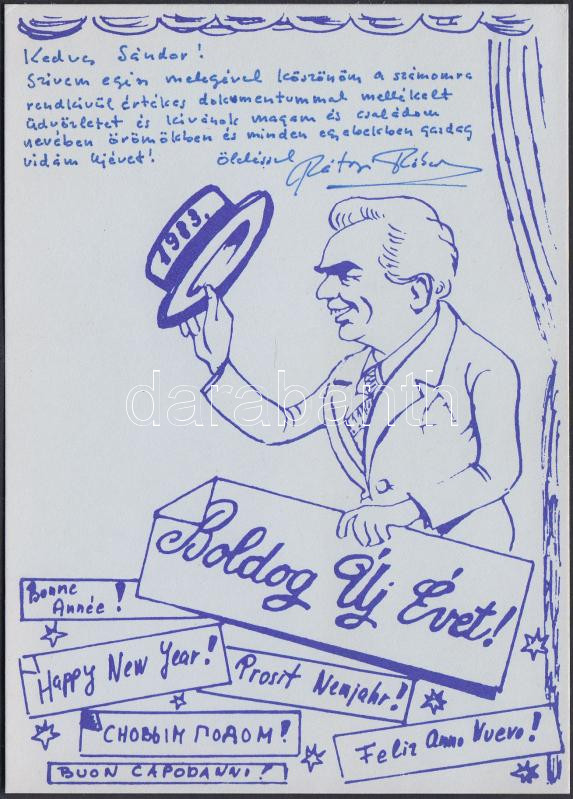 Kedves Sándor!
Szívem egész melegével köszönöm a számomra
rendkívül értékes dokumentummal mellékelt
üdvözletet és kívánok magam és családom
nevében örömökben és minden egyebekben gazdag
vidám újévet! öleléssel
1983.
darabanth
Boldog Új Évet!
Bonne
Année!
Happy New Year!
Prosit Nemjahr!
С НОВЫМ ГОДОМ!
Feliz Anno Nuevo!
BUON CAPODANNI!